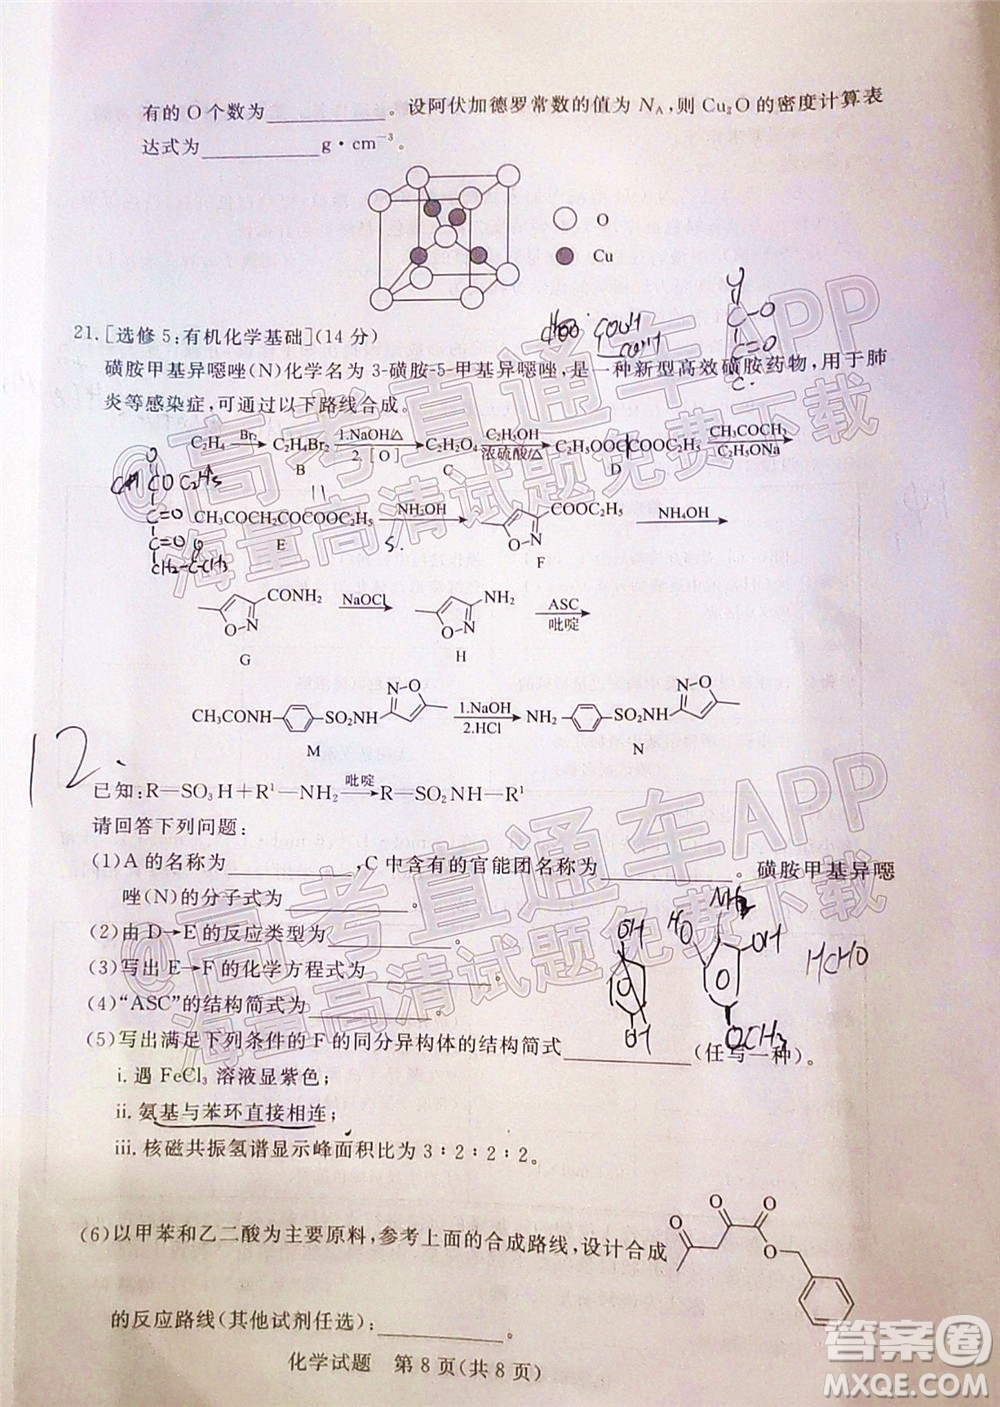 有的 O 个数为________。设阿伏加德罗常数的值为 NA,则 Cu2O 的密度计算表
达式为________g·cm⁻³。
O
Cu
21.[选修 5:有机化学基础](14 分)
CHOO COOH
COOH
磺胺甲基异噁唑(N)化学名为 3-磺胺-5-甲基异噁唑,是一种新型高效磺胺药物,用于肺
炎等感染症,可通过以下路线合成。
C2H4 Br2 C2H4Br2 1.NaOH/△ 2.[O] C2H2O4 C2H5OH 浓硫酸/△ C2H5OOCCOOC2H5 CH3COCH3 C2H5ONa
A B C D
CH3COCH2COCOOC2H5 NH2OH COOC2H5 NH4OH
E F
CONH2 NaOCl NH2 ASC 吡啶
G H
CH3CONH SO2NH 1.NaOH 2.HCl NH2 SO2NH
M N
12.
已知:R—SO3H+R¹—NH2 吡啶 R—SO2NH—R¹
请回答下列问题:
(1)A 的名称为________,C 中含有的官能团名称为________。磺胺甲基异噁
唑(N)的分子式为________。
(2)由 D→E 的反应类型为________。
(3)写出 E→F 的化学方程式为________。
(4)“ASC”的结构简式为________。
(5)写出满足下列条件的 F 的同分异构体的结构简式________(任写一种)。
OH
OH
NH2
HO
OH
OCH3
HCHO
i. 遇 FeCl3 溶液显紫色;
ii. 氨基与苯环直接相连;
iii. 核磁共振氢谱显示峰面积比为 3∶2∶2∶2。
(6)以甲苯和乙二酸为主要原料,参考上面的合成路线,设计合成
的反应路线(其他试剂任选):________。
化学试题 第 8 页(共 8 页)
@高考直通车APP
海量高清试题免费下载
@高考直通车APP
海量高清试题免费下载
答案圈
MXQE.COM